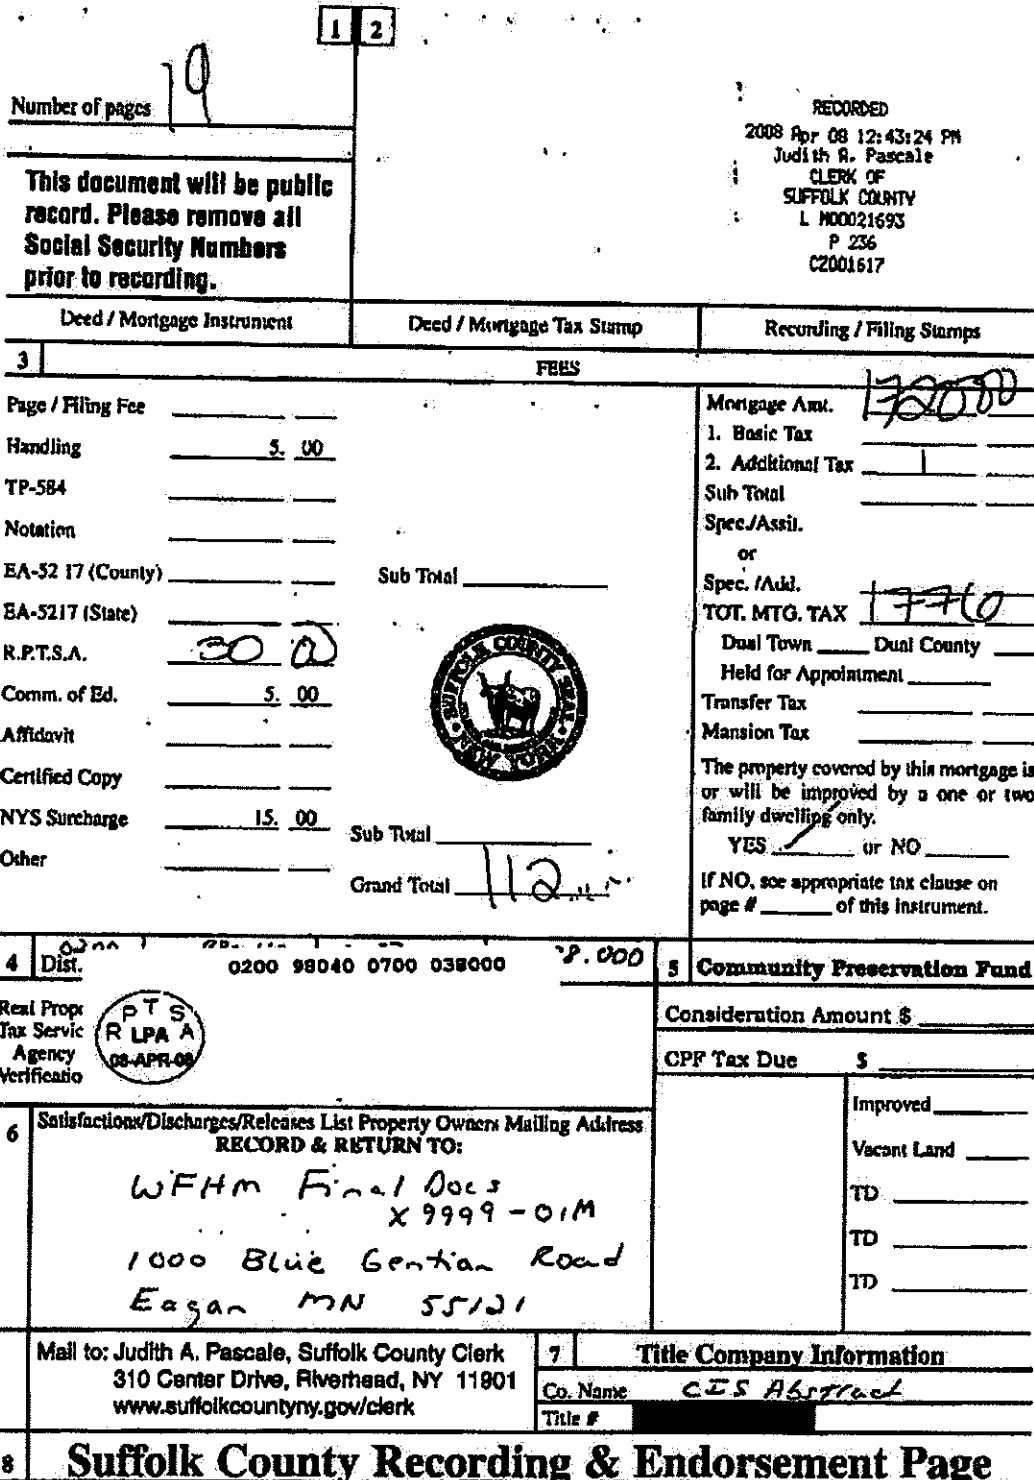 1 2
Number of pages 19
This document will be public
record. Please remove all
Social Security Numbers
prior to recording.
RECORDED
2008 Apr 08 12:43:24 PM
Judith A. Pascale
CLERK OF
SUFFOLK COUNTY
L M00021693
P 236
CZ001617
Deed / Mortgage Instrument
Deed / Mortgage Tax Stamp
Recording / Filing Stamps
3 FEES
Page / Filing Fee
Handling 5. 00
TP-584
Notation
EA-52 17 (County)
EA-5217 (State)
R.P.T.S.A. 30 00
Comm. of Ed. 5. 00
Affidavit
Certified Copy
NYS Surcharge 15. 00
Other
Sub Total
SUFFOLK COUNTY SEAL
NEW YORK
Sub Total
Grand Total 112
Mortgage Amt.
1. Basic Tax
2. Additional Tax
Sub Total
Spec./Assit.
or
Spec. /Add.
TOT. MTG. TAX
Dual Town Dual County
Held for Appointment
Transfer Tax
Mansion Tax
The property covered by this mortgage is
or will be improved by a one or two
family dwelling only.
YES or NO
If NO, see appropriate tax clause on
page # of this instrument.
4 Dist. 0200 98040 0700 038000 8.000
Real Prope
Tax Servic
Agency
Verificatio
P T S
R LPA A
08-APR-08
5 Community Preservation Fund
Consideration Amount $
CPF Tax Due $
Improved
Vacant Land
TD
TD
TD
6 Satisfactions/Discharges/Releases List Property Owners Mailing Address
RECORD & RETURN TO:
WFHM Final Docs
X 9999-01M
1000 Blue Gentian Road
Eagan MN 55121
Mail to: Judith A. Pascale, Suffolk County Clerk
310 Center Drive, Riverhead, NY 11901
www.suffolkcountyny.gov/clerk
7 Title Company Information
Co. Name CIS Abstract
Title #
8 Suffolk County Recording & Endorsement Page